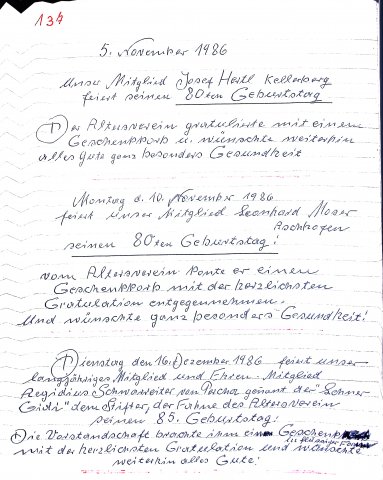 134
5. November 1986
Unser Mitglied Josef Hartl Kellerberg
feiert seinen 80ten Geburtstag
Der Altersverein gratulierte mit einem
Geschenkkorb u. wünschte weiterhin
alles Gute ganz besonders Gesundheit
Montag d. 10. November 1986
feiert unser Mitglied Leonhard Moser
Aschhofen
seinen 80ten Geburtstag!
vom Altersverein konte er einen
Geschenkkorb mit der herzlichsten
Gratulation entgegennehmen.
Und wünschte ganz besonders Gesundheit!
Dienstag den 16. Dezember 1986 feiert unser
langjähriges Mitglied und Ehren-Mitglied
Aegidius Schwarzeiter von Percha genant der
Gidi" dem Stifter, der Fahne des Altersverein
seinen 85. Geburtstag:
Die Vorstandschaft brachte ihm ein Geschenk
in flüssiger Form
mit der herzlichsten Gratulation und wünschte
weiterhin alles Gute!